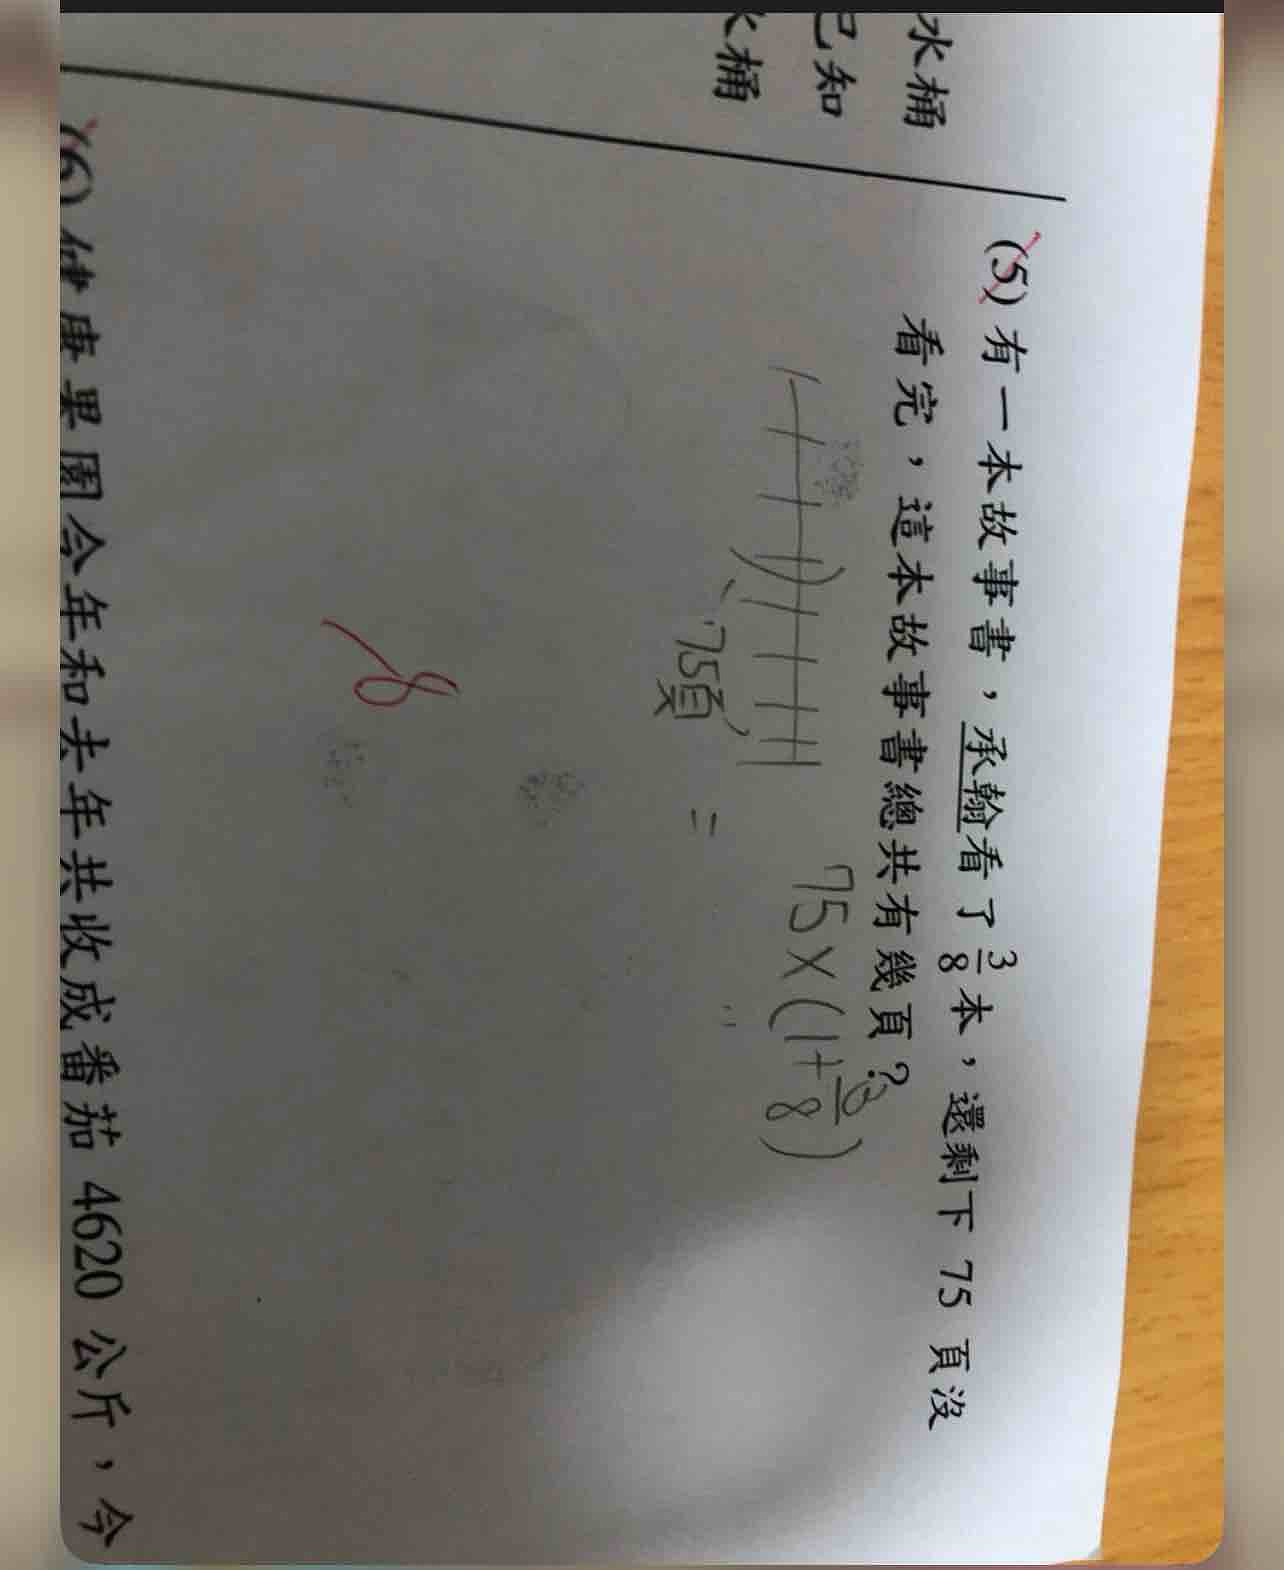 水桶
已知
水桶
(5) 有一本故事書，承翰看了 3/8 本，還剩下 75 頁沒
看完，這本故事書總共有幾頁？
75×(1+3/8)
75頁
=
-8
(6) 健康果園今年和去年共收成番茄 4620 公斤，今